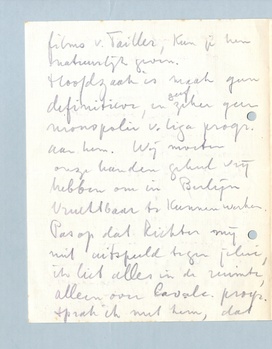 films v. Tailler, kun je hem
natuurlijk geven.
Hoofdzaak is maak geen
definitieve, en zeker geen
zeer
monopolie v. liga progr.
aan hem. Wij moeten
onze handen geheel vrij
hebben om in Berlijn
vruchtbaar te kunnen werken.
Pas op dat Richter mij
niet uitspeelt tegen jullie,
ik liet alles in de ruimte,
alleen over Cavalc. progr.
sprak ik met hem, dat